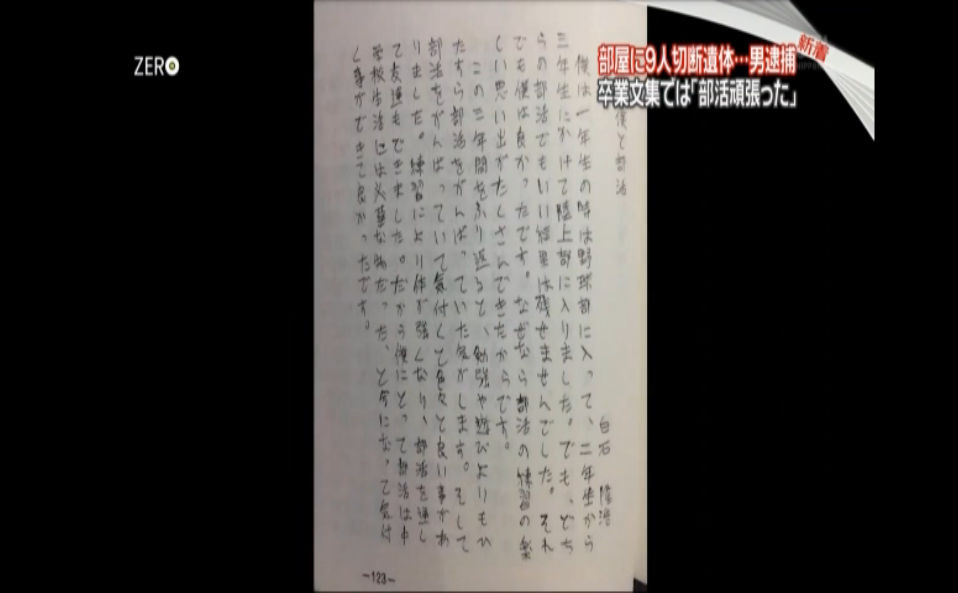 ZERO
新着
部屋に9人切断遺体…男逮捕
卒業文集では「部活頑張った」
僕と部活
白石 隆浩
僕は一年生の時は野球部に入って、二年生から
三年生にかけて陸上部に入りました。でも、どち
らの部活でもいい結果は残せませんでした。それ
でも僕は良かったです。なぜなら部活の練習の楽
しい思い出がたくさんできたからです。
この三年間をふり返ると、勉強や遊びよりもひ
たすら部活をがんばっていた気がします。そして
部活をがんばっていて気付くと色々と良い事があ
りました。練習により体が強くなり、部活を通し
て友達もできました。だから僕にとって部活は中
学校生活には必要な物だった、と今になって気付
く事ができて良かったです。
-123-